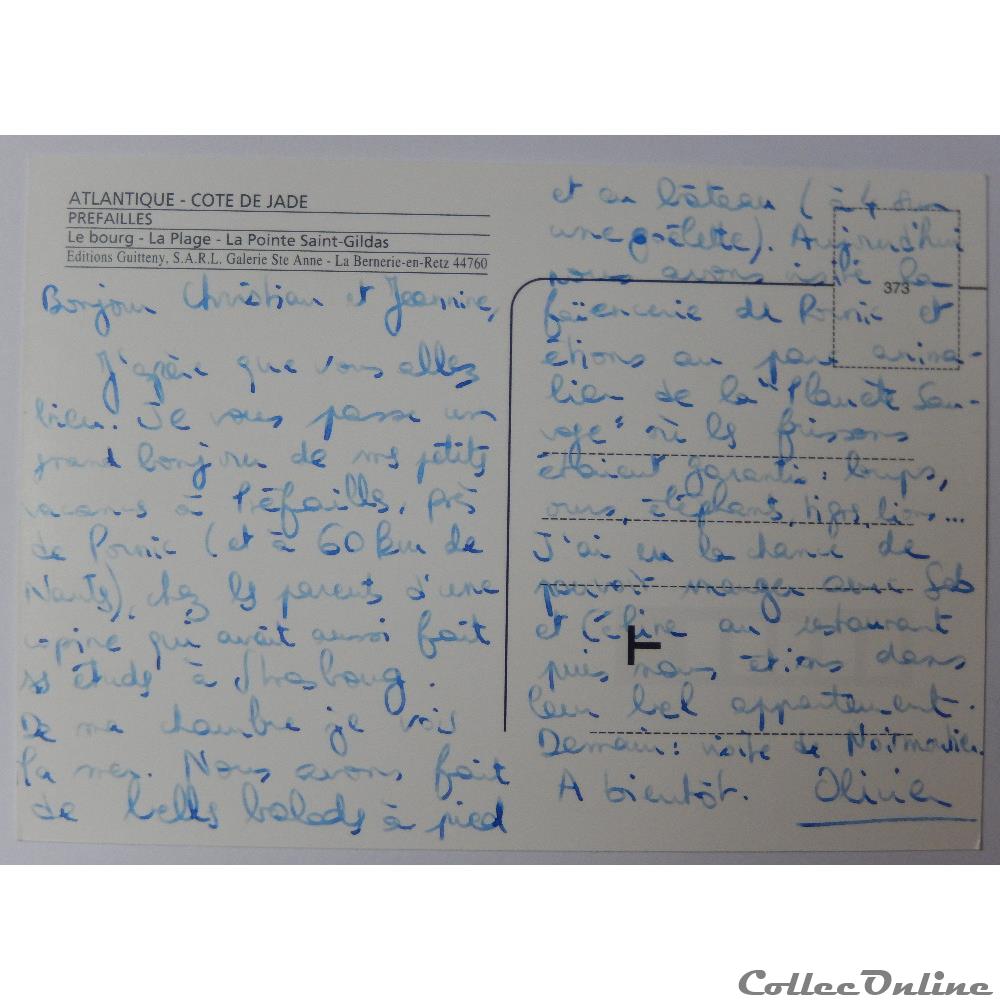 ATLANTIQUE - COTE DE JADE
PREFAILLES
Le bourg - La Plage - La Pointe Saint-Gildas
Editions Guitteny, S.A.R.L. Galerie Ste Anne - La Bernerie-en-Retz 44760
Bonjour Christian et Jeannine,
J'espère que vous allez
bien. Je vous passe un
grand bonjour de mes petites
vacances à Préfailles, près
de Pornic (et à 60 km de
Nantes), chez les parents d'une
copine qui avait aussi fait
ses études à Strasbourg.
De ma chambre je vois
la mer. Nous avons fait
de belles balades à pied
et en bâteau (à 4 sur
une goëlette). Aujourd'hui
nous avons visité la
373
faïencerie de Pornic et
étions au parc anima-
lier de la "Planète Sau-
vage" où les frissons
étaient garantis : loups,
ours, éléphants, tigres, lions...
J'ai eu la chance de
pouvoir manger avec Seb
et Céline au restaurant
T
puis nous étions dans
leur bel appartement.
Demain : visite de Noirmoutier.
A bientôt. Olivier
CollecOnline